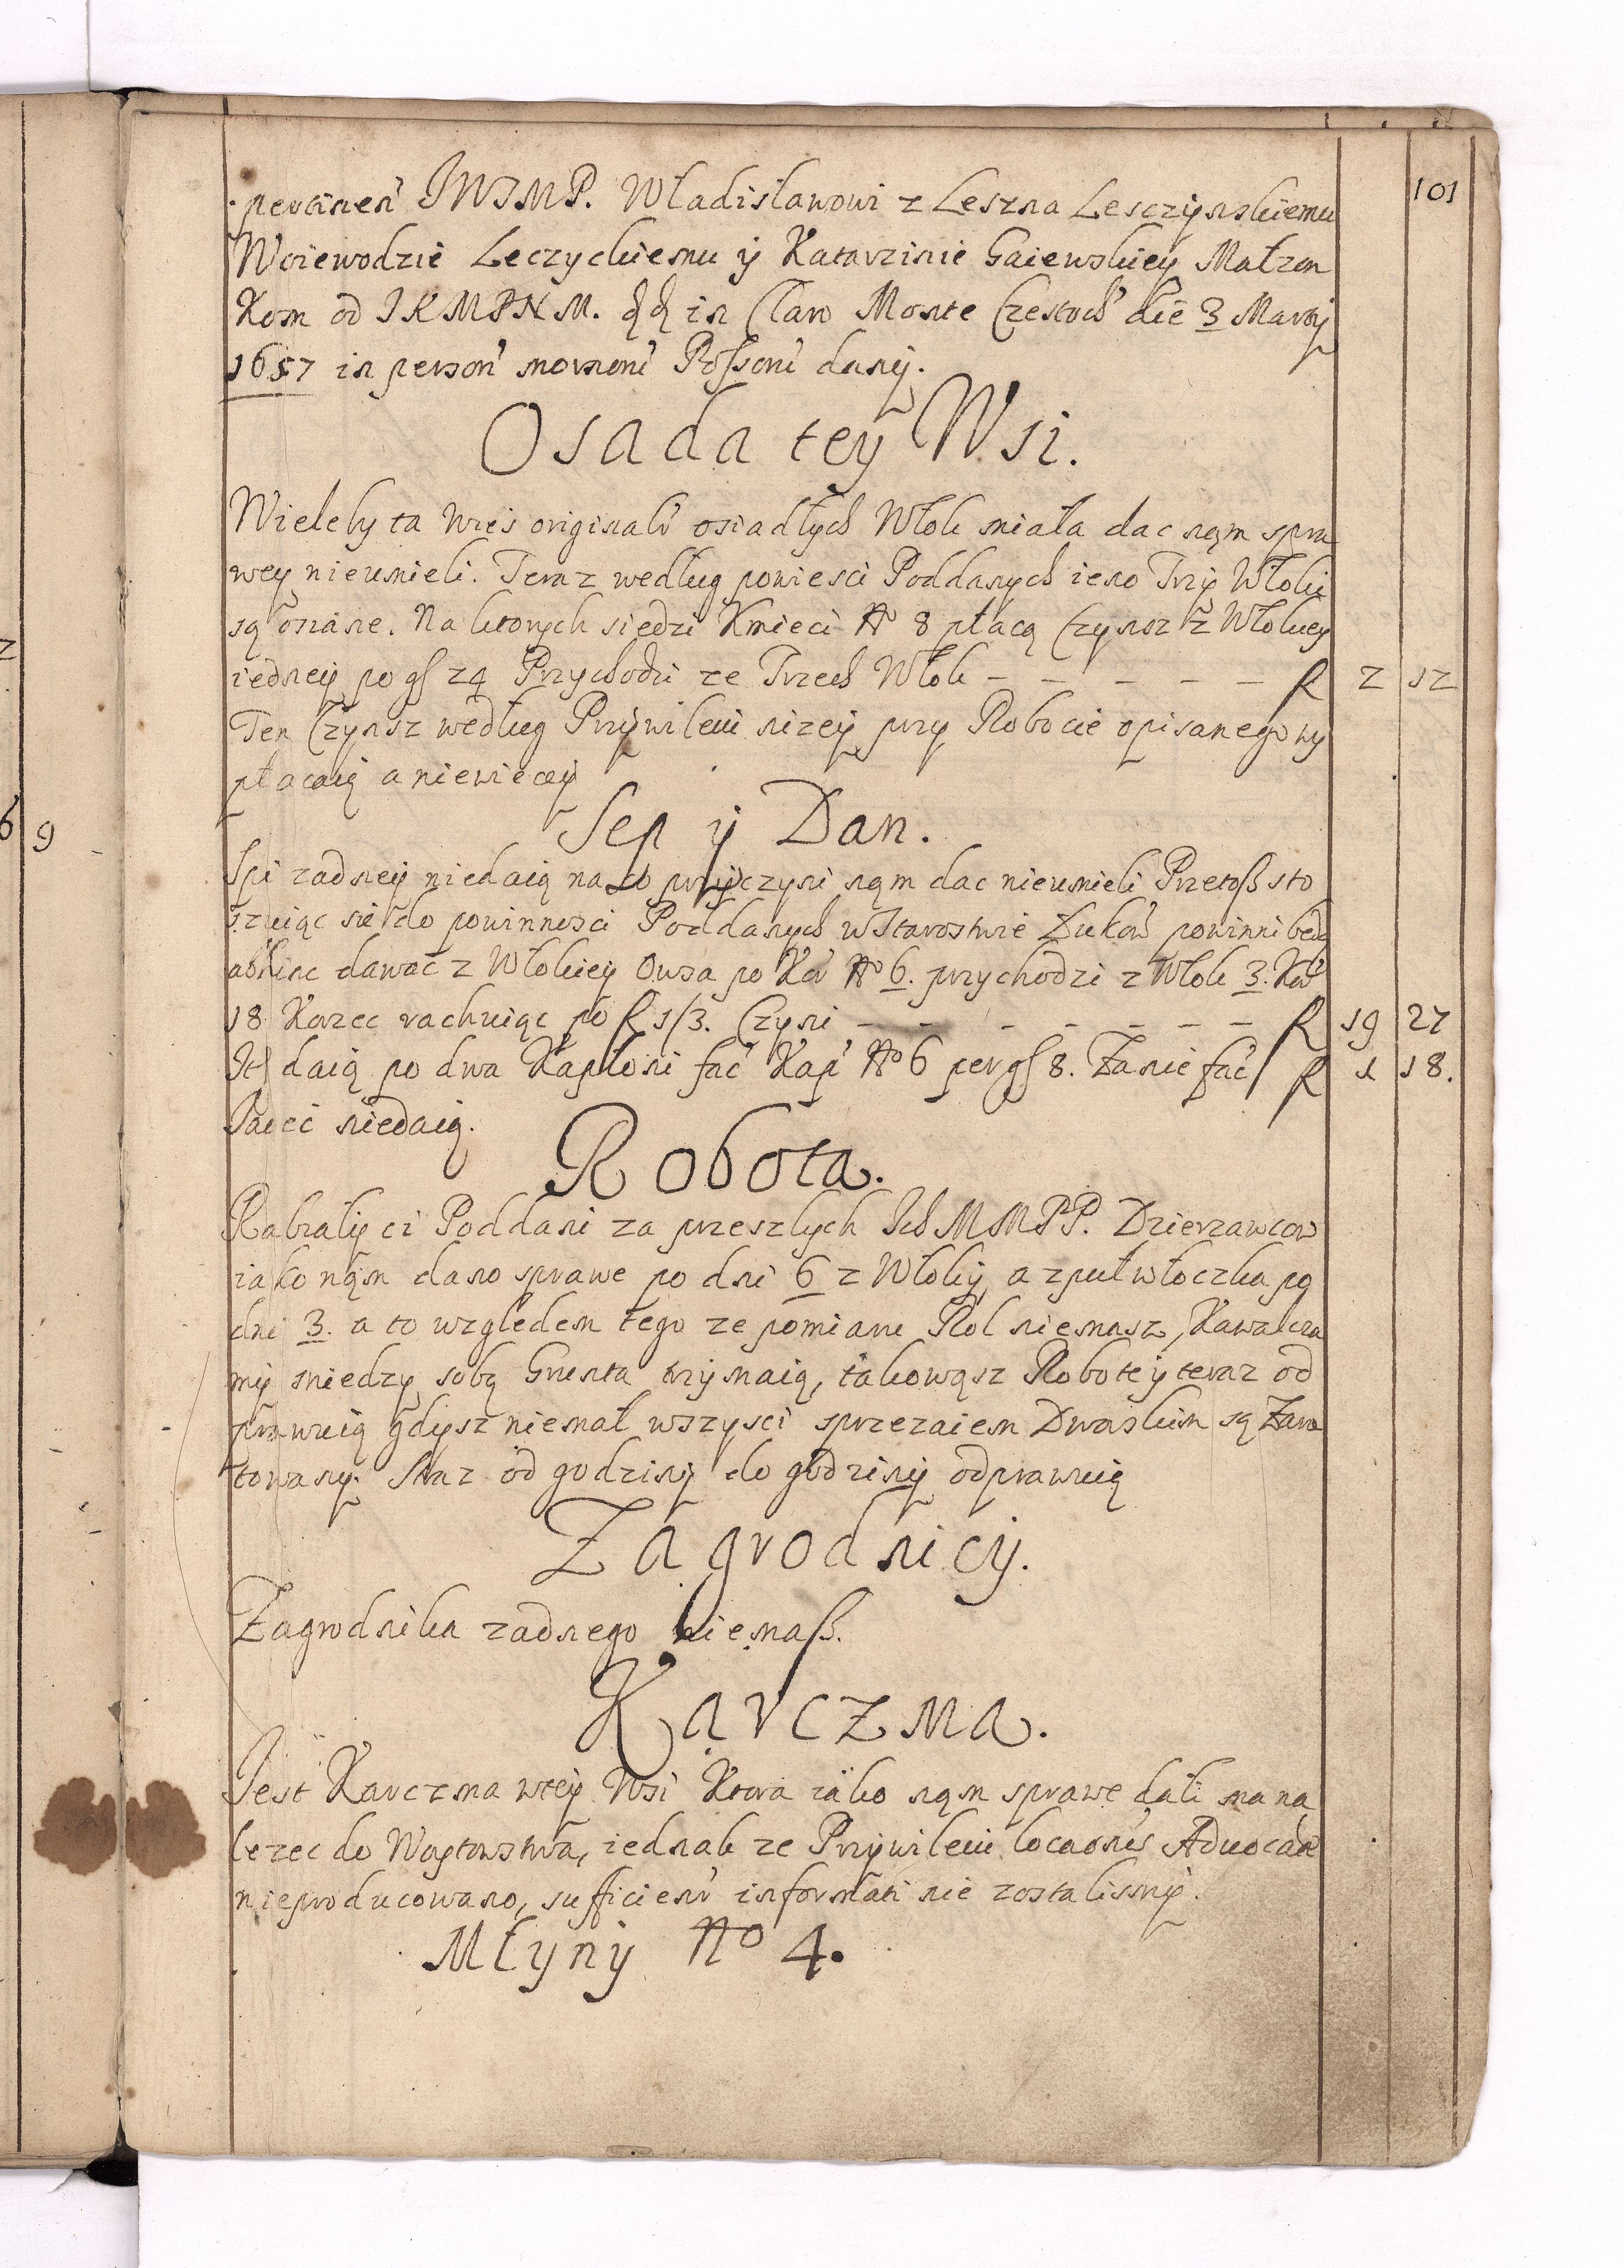 101
pertinen JWJMP. Władisławowi z Leszna Lesczÿnskiemu
Woiewodzie Leczyckiemu ÿ Katarzinie Gaiewskieÿ Małzon
kom od JKMPNM. in Claro Monte Czestoch die 3 Martÿ
1657 in person Possoni danÿ.
Osada teÿ Wsi.
Wieleby ta Wies originalr osiadłych Włok miała dac nąm spra
weÿ nieumieli. Teraz według powiesci Poddanych ieno Trzÿ Włoki
są osiane. Na ktorych siedzi Kmieci No 8 płacą Czynsz z Włokieÿ
iedneÿ po gs 24 Przychodzi ze Trzech Włok – – – – – f 2 12
Ten Czynsz według Przÿwileiu nizeÿ przy Robocie opisanego wy
płacaią a niewieceÿ
Sep ÿ Dan.
Spi zadneÿ niedaią na to przÿczyni nąm dac nieumieli Przetoß sto
szuiąc sie do powinnosci Poddanych w Starostwie Zukow powinni beda
abhinc dawac z Włokieÿ Owsa po Kor No 6. przychodzi z Włok 3. Kor
18 Korzec rachuiąc po f 1/3. Czyni – – – – – – – f 19 27
It daią po dwa Kapłoni fac Kap No 6 per gs 8. Zanie fac f 1 18.
Jaiec niedaią.
Robota.
Rabialÿ ci Poddani za przeszłych Ich MMPP. Dzierzawcow
iako nąm dano sprawe po dni 6 z Włokÿ, a z puł włoczka po
dni 3. a to wzgledem tego ze pomiaru Rol niemasz, Kawałcza
mÿ miedzy sobą Grunta trzÿmaią, takowąsz Robote ÿ teraz od
prawuią gdysz niemal wszysci sprzezaiem Dworskim są Zara
towanÿ. Straz od godzinÿ do godzinÿ odprawuią
Zagrodnicÿ.
Zagrodnika zadnego niemaß.
Karczma.
Jest Karczma wteÿ Wsi Ktora iako nąm sprawe dali ma na
lezec do Woytowstwa, iednak ze Przÿwileiu locaonis Aduocati
nieproducowano, sufficienr informati nie zostalismÿ.
Młynÿ No 4.
2
6 9